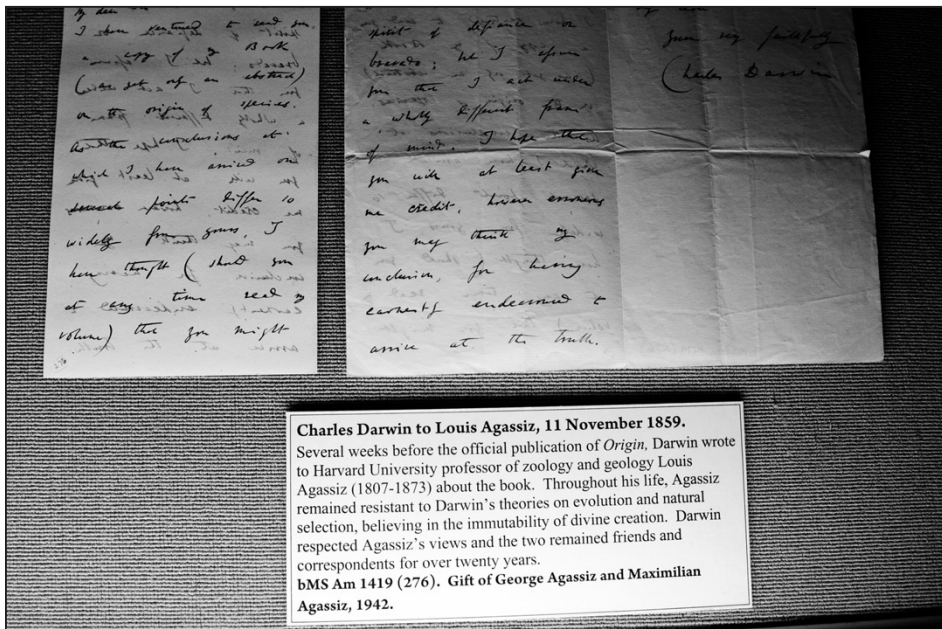 My dear Sir
I have ventured to send you
a copy of my Book
(as yet only an abstract)
on the origin of species.
As the conclusions at
which I have arrived on
several points differ so
widely from yours, I
have thought (should you
at any time read my
volume) that you might
spirit of defiance or
bravado; but I assure
you that I act under
a wholly different frame
of mind. I hope that
you will at least give
me credit, however erroneous
you may think my
conclusion, for having
earnestly endeavoured to
arrive at the truth.
Yours very faithfully
Charles Darwin
Charles Darwin to Louis Agassiz, 11 November 1859.
Several weeks before the official publication of Origin, Darwin wrote
to Harvard University professor of zoology and geology Louis
Agassiz (1807-1873) about the book. Throughout his life, Agassiz
remained resistant to Darwin's theories on evolution and natural
selection, believing in the immutability of divine creation. Darwin
respected Agassiz's views and the two remained friends and
correspondents for over twenty years.
bMS Am 1419 (276). Gift of George Agassiz and Maximilian
Agassiz, 1942.